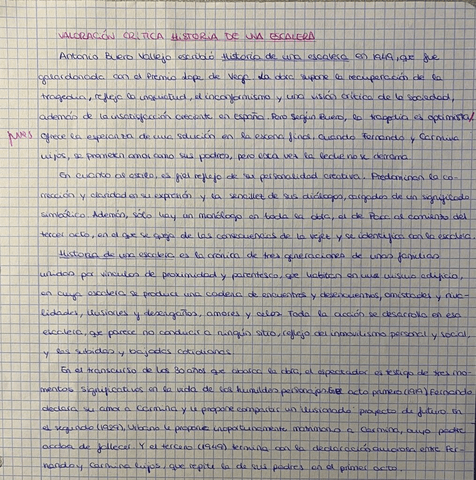 VALORACIÓN CRÍTICA HISTORIA DE UNA ESCALERA
Antonio Buero Vallejo escribió Historia de una escalera en 1949, que fue
galardonada con el Premio Lope de Vega. La obra supone la recuperación de la
tragedia, refleja la inquietud, el inconformismo y una visión crítica de la sociedad,
además de la insatisfacción creciente en España. Para según Buero, la tragedia es optimista,
pues ofrece la esperanza de una solución en la escena final, cuando Fernando y Carmina
hijos, se prometen amor como sus padres, pero esta vez la leche no se derrama.
En cuanto al estilo, es fiel reflejo de su personalidad creativa. Predominan la co-
rrección y claridad en su expresión y la sencillez de sus diálogos, cargados de un significado
simbólico. Además, sólo hay un monólogo en toda la obra, el de Paca al comienzo del
tercer acto, en el que se queja de las consecuencias de la vejez y se identifica con la escalera.
Historia de una escalera es la crónica de tres generaciones de unas familias
unidas por vínculos de proximidad y parentesco, que habitan en un mismo edificio,
en cuya escalera se produce una cadena de encuentros y desencuentros, amistades y riva-
lidades, ilusiones y desengaños, amores y celos. Toda la acción se desarrolla en esa
escalera, que parece no conducir a ningún sitio, reflejo del inmovilismo personal y social,
y las subidas y bajadas cotidianas.
En el transcurso de los 30 años que abarca la obra, el espectador es testigo de tres mo-
mentos significativos en la vida de los humildes personajes. acto primero (1919) Fernando
declara su amor a Carmina y le propone compartir un ilusionado proyecto de futuro. En
el segundo (1929), Urbano le propone inoportunamente matrimonio a Carmina, cuyo padre
acaba de fallecer. Y el tercero (1949) termina con la declaración amorosa entre Fer-
nando y Carmina hijos, que repite la de sus padres en el primer acto.